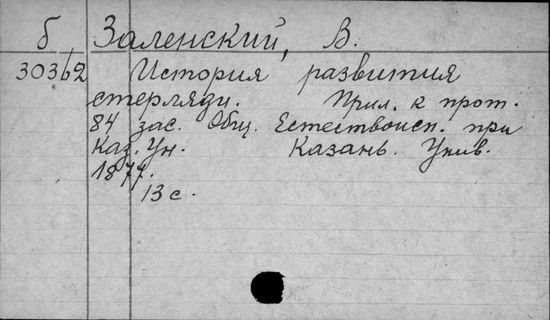 б Заленский, В.
30362 История развития
стерляди. Прил. к прот.
84 зас. Общ. Естествоисп. при
Каз. Ун. Казань. Унив.
1877.
13 с.